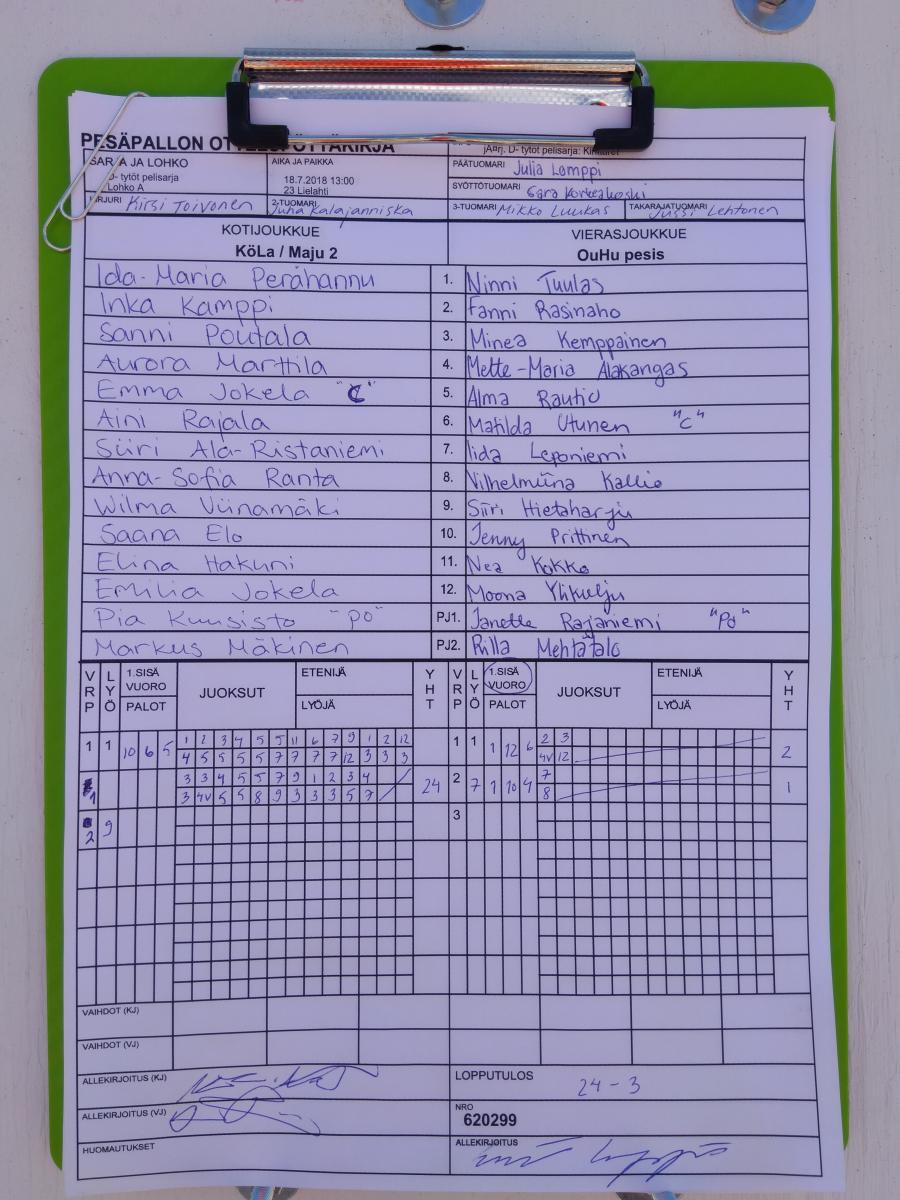 PESÄPALLON OTTELUPÖYTÄKIRJA
SARJA JA LOHKO
D- tytöt pelisarja
Lohko A
AIKA JA PAIKKA
18.7.2018 13:00
23 Lielahti
PÄÄTUOMARI Julia Lamppi
SYÖTTÖTUOMARI Sara Korteakoski
Kirsi Toivonen
2-TUOMARI Juha Kalajanniska
3-TUOMARI Mikko Luukas
TAKARAJATUOMARI Jussi Lehtonen
KOTIJOUKKUE
KöLa / Maju 2
VIERASJOUKKUE
OuHu pesis
Ida-Maria Perähannu 1. Ninni Tuulas
Inka Kamppi 2. Fanni Rasinaho
Sanni Poutala 3. Minea Kemppainen
Aurora Marttila 4. Mette-Maria Alakangas
Emma Jokela "C" 5. Alma Rautio
Aini Rajala 6. Matilda Utunen "C"
Siiri Ala-Ristaniemi 7. Iida Leponiemi
Anna-Sofia Ranta 8. Vilhelmiina Kallio
Wilma Viinamäki 9. Siiri Hietaharju
Saana Elo 10. Jenny Prittinen
Elina Hakuni 11. Nea Kokko
Emilia Jokela 12. Moona Ylikulju
Pia Kuusisto "PO" PJ1. Janette Rajaniemi "Po"
Markus Mäkinen PJ2. Rilla Mehtätalo
VRP LYÖ 1.SISÄ VUORO PALOT JUOKSUT ETENIJÄ LYÖJÄ YHT VRP LYÖ 1.SISÄ VUORO PALOT JUOKSUT ETENIJÄ LYÖJÄ YHT
1 2 3 4 5 5 11 6 7 9 1 2 12 2 3
1 1 10 6 5 1 1 1 12 6 2
4 5 5 5 5 7 7 7 7 12 3 3 3 4V 12
3 3 4 5 5 7 9 1 2 3 4 7
1 24 2 7 1 10 4 1
3 4V 5 5 8 9 3 3 3 5 7 8
2 9 3
VAIHDOT (KJ)
VAIHDOT (VJ)
ALLEKIRJOITUS (KJ)
LOPPUTULOS 24 - 3
ALLEKIRJOITUS (VJ)
NRO
620299
HUOMAUTUKSET
ALLEKIRJOITUS